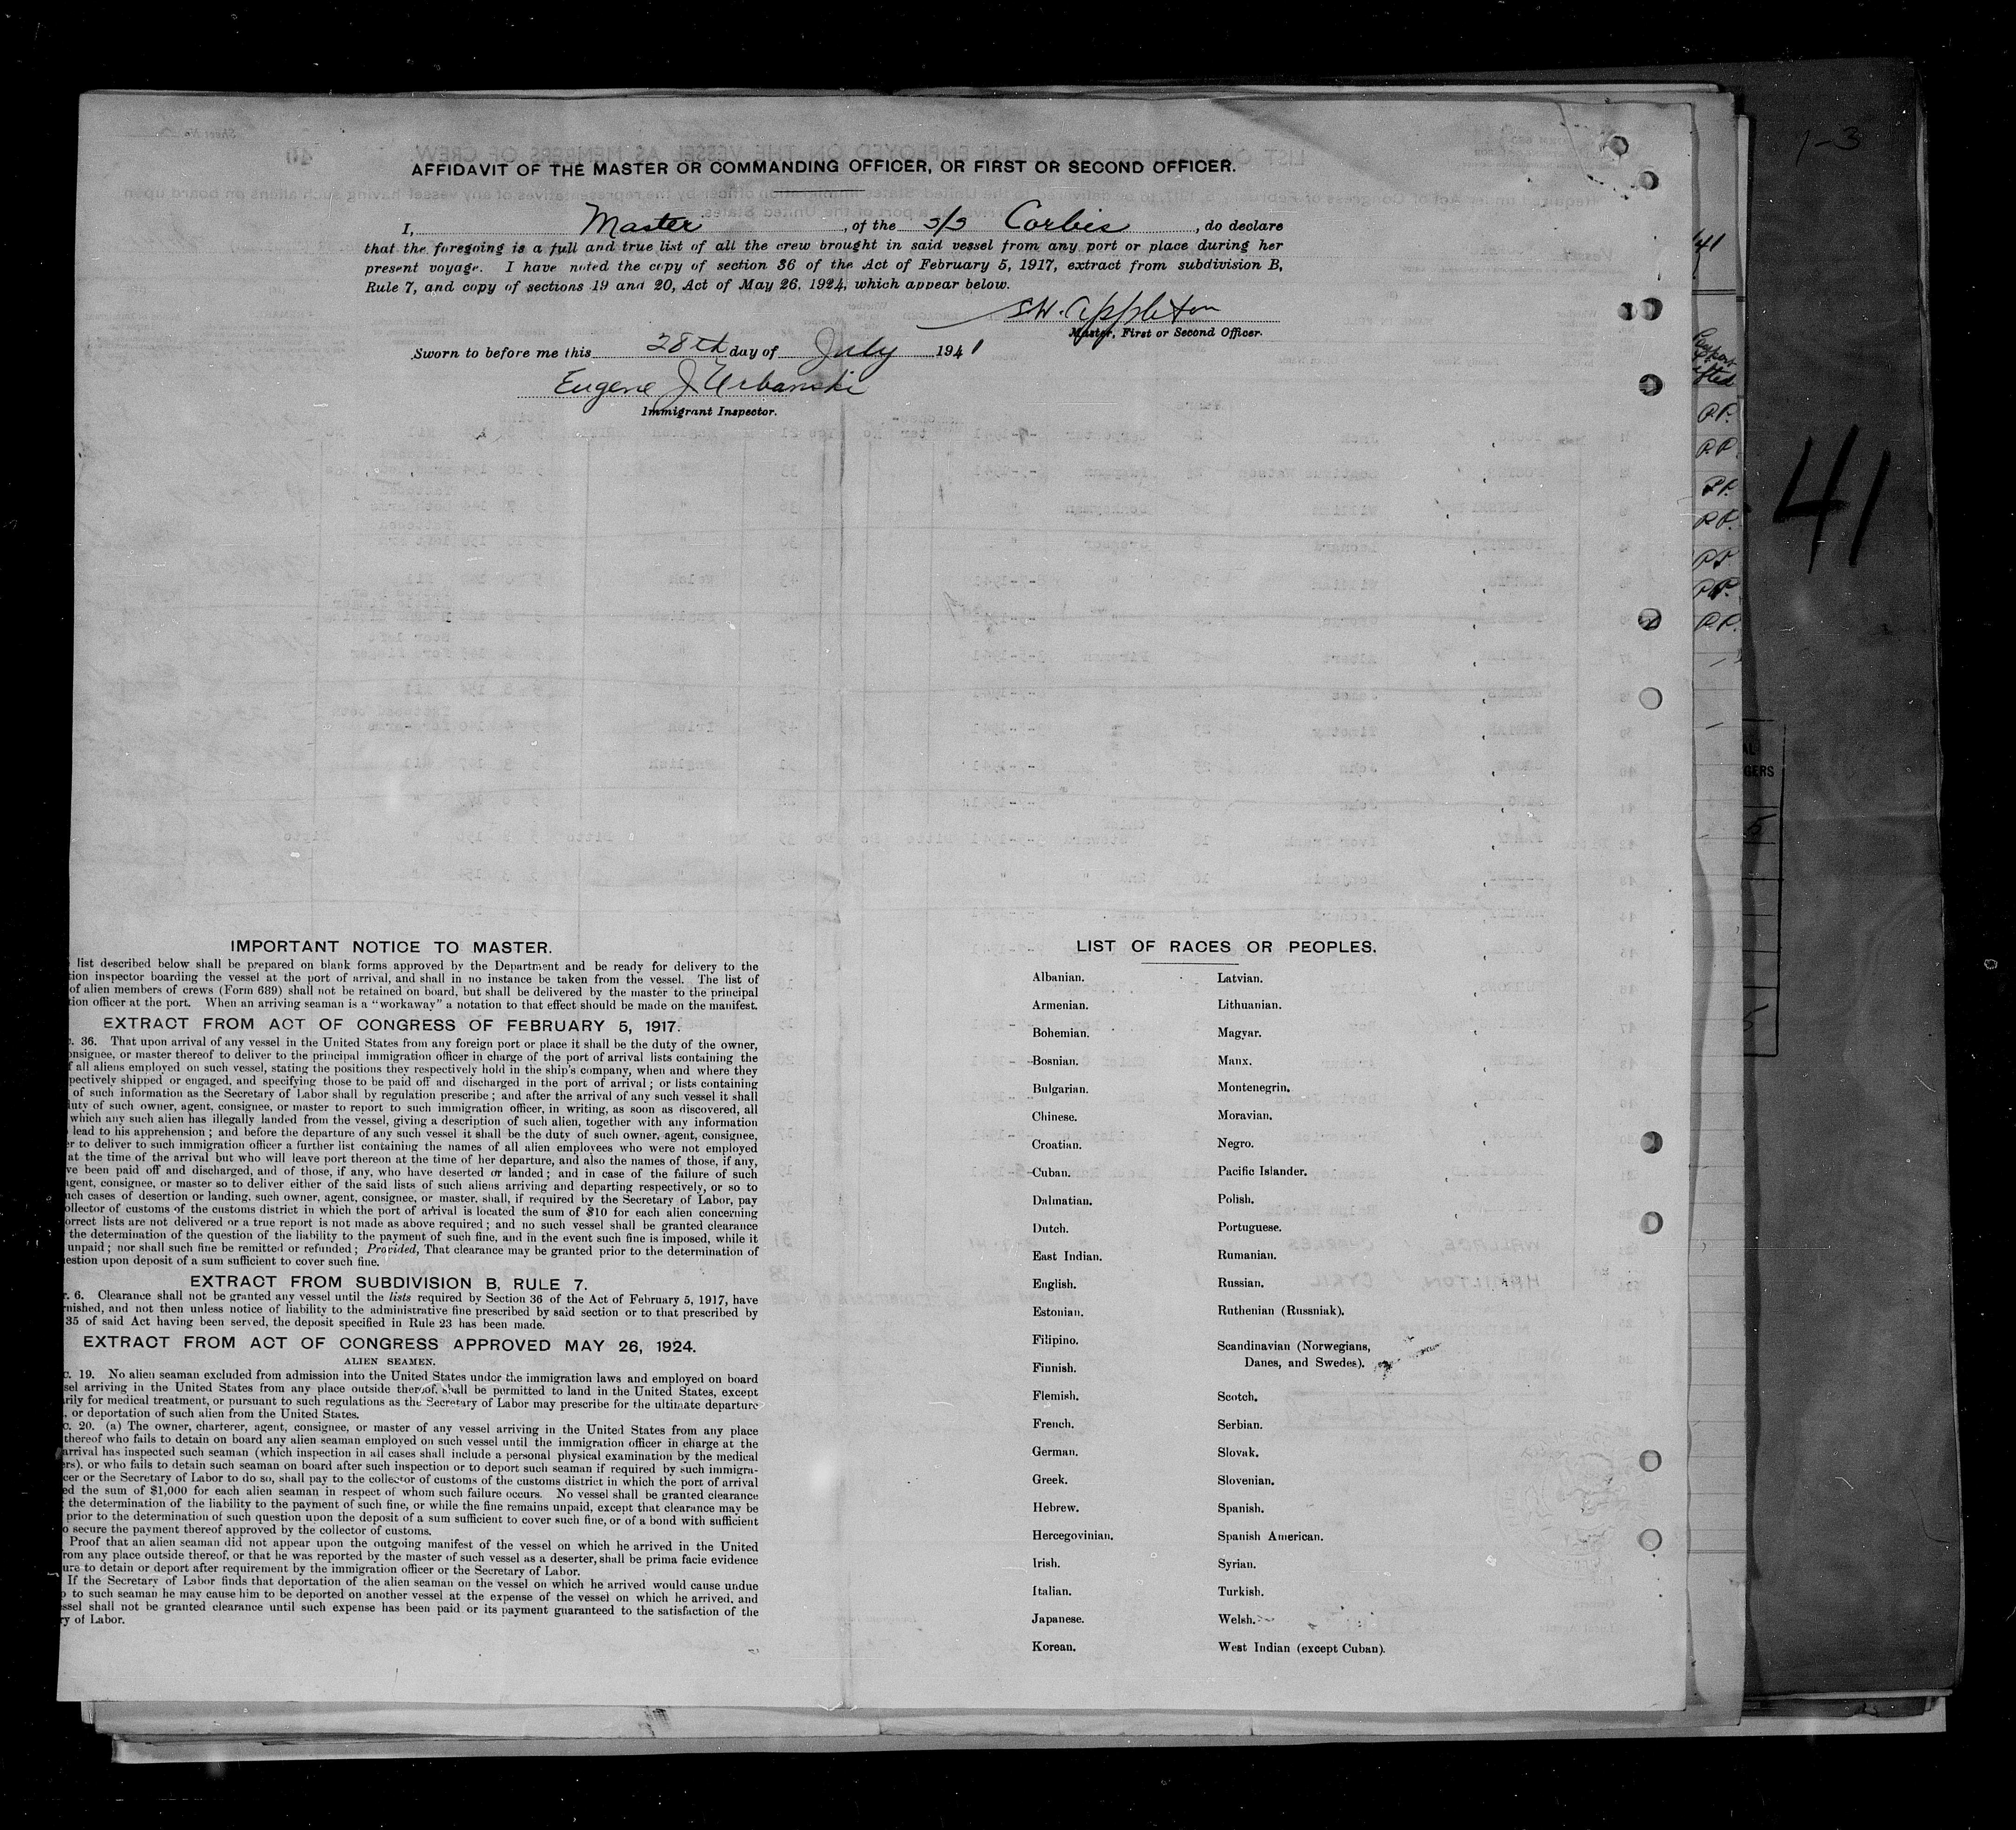 AFFIDAVIT OF THE MASTER OR COMMANDING OFFICER, OR FIRST OR SECOND OFFICER.
I, Master, of the S/S Corbis, do declare
that the foregoing is a full and true list of all the crew brought in said vessel from any port or place during her
present voyage. I have noted the copy of section 36 of the Act of February 5, 1917, extract from subdivision B,
Rule 7, and copy of sections 19 and 20, Act of May 26, 1924, which appear below.
SW. Appleton
Master, First or Second Officer.
Sworn to before me this 28th day of July 1941
Eugene J Urbanski
Immigrant Inspector.
IMPORTANT NOTICE TO MASTER.
list described below shall be prepared on blank forms approved by the Department and be ready for delivery to the
tion inspector boarding the vessel at the port of arrival, and shall in no instance be taken from the vessel. The list of
of alien members of crews (Form 689) shall not be retained on board, but shall be delivered by the master to the principal
tion officer at the port. When an arriving seaman is a "workaway" a notation to that effect should be made on the manifest.
EXTRACT FROM ACT OF CONGRESS OF FEBRUARY 5, 1917.
c. 36. That upon arrival of any vessel in the United States from any foreign port or place it shall be the duty of the owner,
onsignee, or master thereof to deliver to the principal immigration officer in charge of the port of arrival lists containing the
f all aliens employed on such vessel, stating the positions they respectively hold in the ship's company, when and where they
pectively shipped or engaged, and specifying those to be paid off and discharged in the port of arrival; or lists containing
of such information as the Secretary of Labor shall by regulation prescribe; and after the arrival of any such vessel it shall
duty of such owner, agent, consignee, or master to report to such immigration officer, in writing, as soon as discovered, all
which any such alien has illegally landed from the vessel, giving a description of such alien, together with any information
lead to his apprehension; and before the departure of any such vessel it shall be the duty of such owner, agent, consignee,
er to deliver to such immigration officer a further list containing the names of all alien employees who were not employed
at the time of the arrival but who will leave port thereon at the time of her departure, and also the names of those, if any,
ve been paid off and discharged, and of those, if any, who have deserted or landed; and in case of the failure of such
agent, consignee, or master so to deliver either of the said lists of such aliens arriving and departing respectively, or so to
uch cases of desertion or landing, such owner, agent, consignee, or master, shall, if required by the Secretary of Labor, pay
ollector of customs of the customs district in which the port of arrival is located the sum of $10 for each alien concerning
orrect lists are not delivered or a true report is not made as above required; and no such vessel shall be granted clearance
the determination of the question of the liability to the payment of such fine, and in the event such fine is imposed, while it
unpaid; nor shall such fine be remitted or refunded; Provided, That clearance may be granted prior to the determination of
estion upon deposit of a sum sufficient to cover such fine.
EXTRACT FROM SUBDIVISION B, RULE 7.
r. 6. Clearance shall not be granted any vessel until the lists required by Section 36 of the Act of February 5, 1917, have
rnished, and not then unless notice of liability to the administrative fine prescribed by said section or to that prescribed by
35 of said Act having been served, the deposit specified in Rule 23 has been made.
EXTRACT FROM ACT OF CONGRESS APPROVED MAY 26, 1924.
ALIEN SEAMEN.
c. 19. No alien seaman excluded from admission into the United States under the immigration laws and employed on board
sel arriving in the United States from any place outside thereof, shall be permitted to land in the United States, except
rily for medical treatment, or pursuant to such regulations as the Secretary of Labor may prescribe for the ultimate departure
, or deportation of such alien from the United States.
c. 20. (a) The owner, charterer, agent, consignee, or master of any vessel arriving in the United States from any place
thereof who fails to detain on board any alien seaman employed on such vessel until the immigration officer in charge at the
arrival has inspected such seaman (which inspection in all cases shall include a personal physical examination by the medical
ers), or who fails to detain such seaman on board after such inspection or to deport such seaman if required by such immigra-
cer or the Secretary of Labor to do so, shall pay to the collector of customs of the customs district in which the port of arrival
ed the sum of $1,000 for each alien seaman in respect of whom such failure occurs. No vessel shall be granted clearance
the determination of the liability to the payment of such fine, or while the fine remains unpaid, except that clearance may be
prior to the determination of such question upon the deposit of a sum sufficient to cover such fine, or of a bond with sufficient
o secure the payment thereof approved by the collector of customs.
Proof that an alien seaman did not appear upon the outgoing manifest of the vessel on which he arrived in the United
rom any place outside thereof, or that he was reported by the master of such vessel as a deserter, shall be prima facie evidence
ure to detain or deport after requirement by the immigration officer or the Secretary of Labor.
If the Secretary of Labor finds that deportation of the alien seaman on the vessel on which he arrived would cause undue
p to such seaman he may cause him to be deported on another vessel at the expense of the vessel on which he arrived, and
ssel shall not be granted clearance until such expense has been paid or its payment guaranteed to the satisfaction of the
ry of Labor.
LIST OF RACES OR PEOPLES.
Albanian.
Armenian.
Bohemian.
Bosnian.
Bulgarian.
Chinese.
Croatian.
Cuban.
Dalmatian.
Dutch.
East Indian.
English.
Estonian.
Filipino.
Finnish.
Flemish.
French.
German.
Greek.
Hebrew.
Hercegovinian.
Irish.
Italian.
Japanese.
Korean.
Latvian.
Lithuanian.
Magyar.
Manx.
Montenegrin.
Moravian.
Negro.
Pacific Islander.
Polish.
Portuguese.
Rumanian.
Russian.
Ruthenian (Russniak).
Scandinavian (Norwegians,
Danes, and Swedes).
Scotch.
Serbian.
Slovak.
Slovenian.
Spanish.
Spanish American.
Syrian.
Turkish.
Welsh.
West Indian (except Cuban).
41
P.P.
P.P.
P.P.
P.P.
P.P.
P.P.
P.P.
1-3
41
AL
GERS
5